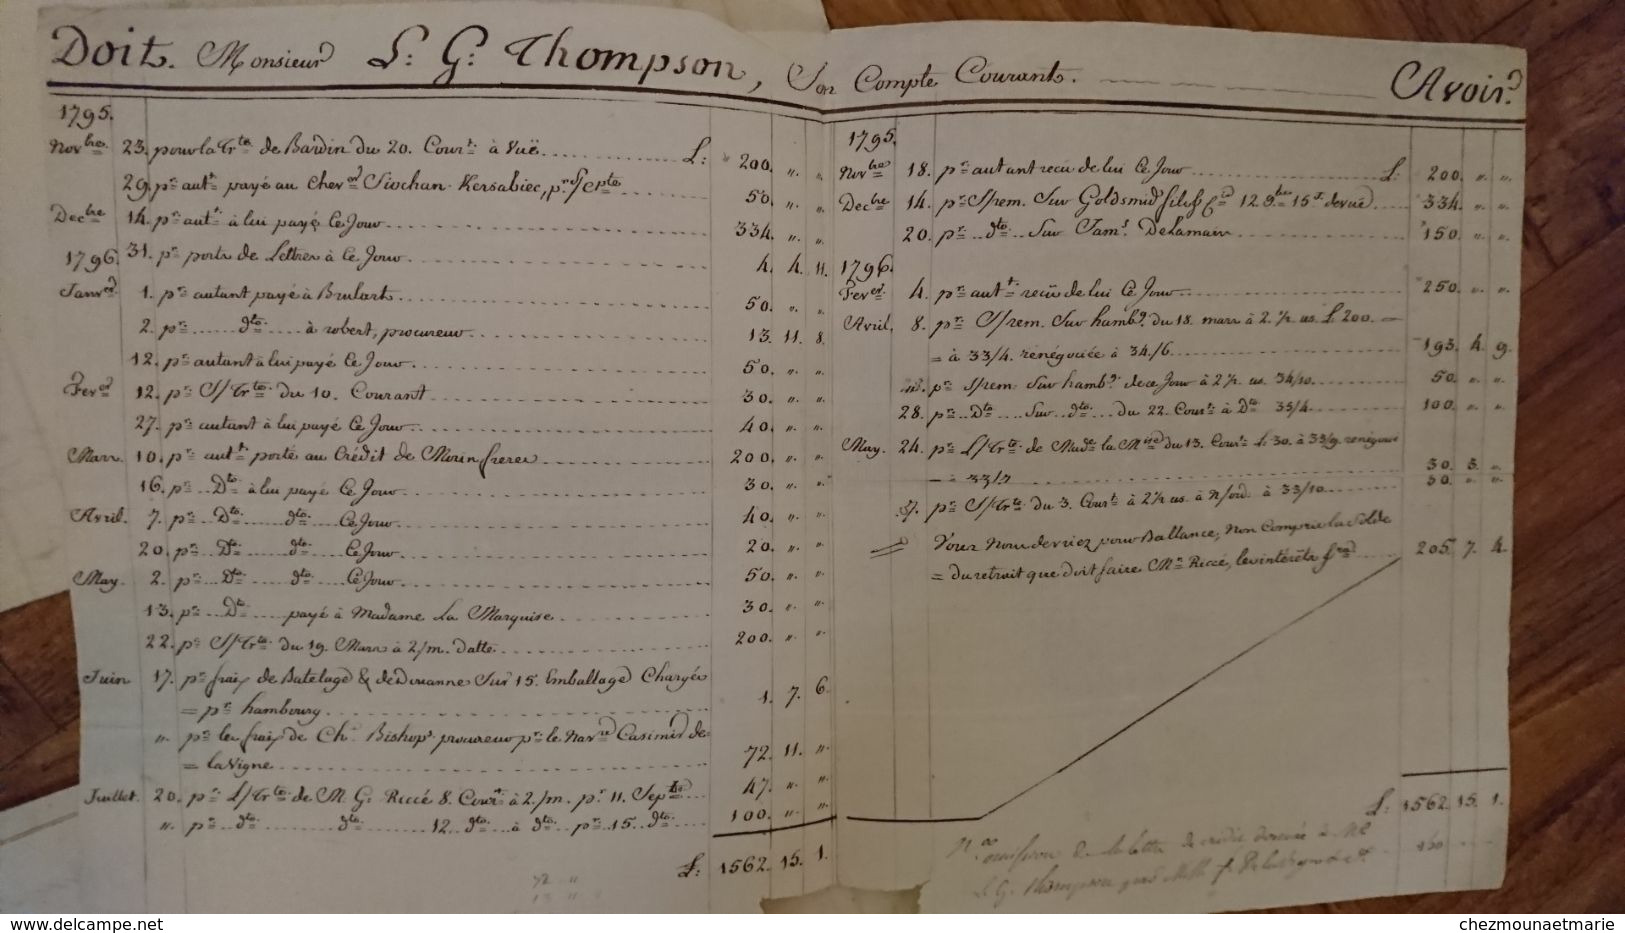 Doit. Monsieur L: G: Thompson, Son Compte Courant. Avoir.
1795.
Novbre 23. pour la Tte de Bardin du 20. Court à Vuë L: 200. " "
29. pr autt payé au Chever Siochan Kersabiec, pr 50. " "
Decbre 14. pr autt à lui payé Ce Jour 334. " "
31. pr ports de Lettres à Ce Jour 4. 4. 11.
1796.
Janver 1. pr autant payé à Brulart 50. " "
2. pr dto à robert, procureur 13. 11. 8.
12. pr autant à lui payé Ce Jour 50. " "
Fever 12. pr S/Trte du 10. Courant 30. " "
27. pr autant à lui payé Ce Jour 40. " "
Mars. 10. pr autt porté au Crédit de Morin freres 200. " "
16. pr Dto à lui payé Ce Jour 30. " "
Avril. 7. pr Dto dto Ce Jour 40. " "
20. pr Dto dto Ce Jour 20. " "
May. 2. pr Dto dto Ce Jour 50. " "
13. pr Dto payé à Madame La Marquise 30. " "
22. pr S/Trte du 19. Mars à 2/m. datte 200. " "
Juin 17. pr fraix de Batelage & de Douanne Sur 15. Emballage Chargés
= pr hambourg 1. 7. 6.
" pr les fraix de Ch. Bishop procureur pr le Navre Casimir de=
= la Vigne 72. 11. "
Juillet. 20. pr L/Trte de M. G. Riccé 8. Court à 2./m. pr 11. Septbre 47. " "
" pr dto dto 12. dto à dto pr 15. dto 100. " "
L: 1562. 15. 1.
72 "
13 "
1795.
Novbre 18. pr autant recu de lui Ce Jour L: 200. " "
Decbre 14. pr S/rem. Sur Goldsmid fils & Cie 12. 9bre 15 J. de vuë 334. " "
20. pr dto Sur Jams Delamain 150. " "
1796.
Fever 4. pr autt reçû de lui Ce Jour 250. " "
Avril. 8. pr S/rem. Sur hambg du 18. mars à 2. 1/2 us. L 200. =
= à 33/4. renégociée à 34/6 193. 4. 9.
pr S/rem. Sur hambg de ce Jour à 2 1/2 us. 34/10 50. " "
28. pr Dto Sur dto du 22. Court à Dto 35/4 100. " "
May. 24. pr L/Trte de Made la Mise du 13. Court L. 30. à 33/9. renégociée
= à 33/7 30. 3. "
pr S/Trte du 3. Court à 2 1/2 us. à 33/10 30. " "
Vous Nous devriez pour Ballance, Non Compris la Solde
= du retrait que doit faire Mr Riccé, les intérêts 205. 7. 4.
L: 1562. 15. 1.
omission de la lettre de crédit à Mr
L. G. Thompson
chezmounaetmarie.e-monsite.com
chezmounaetmarie